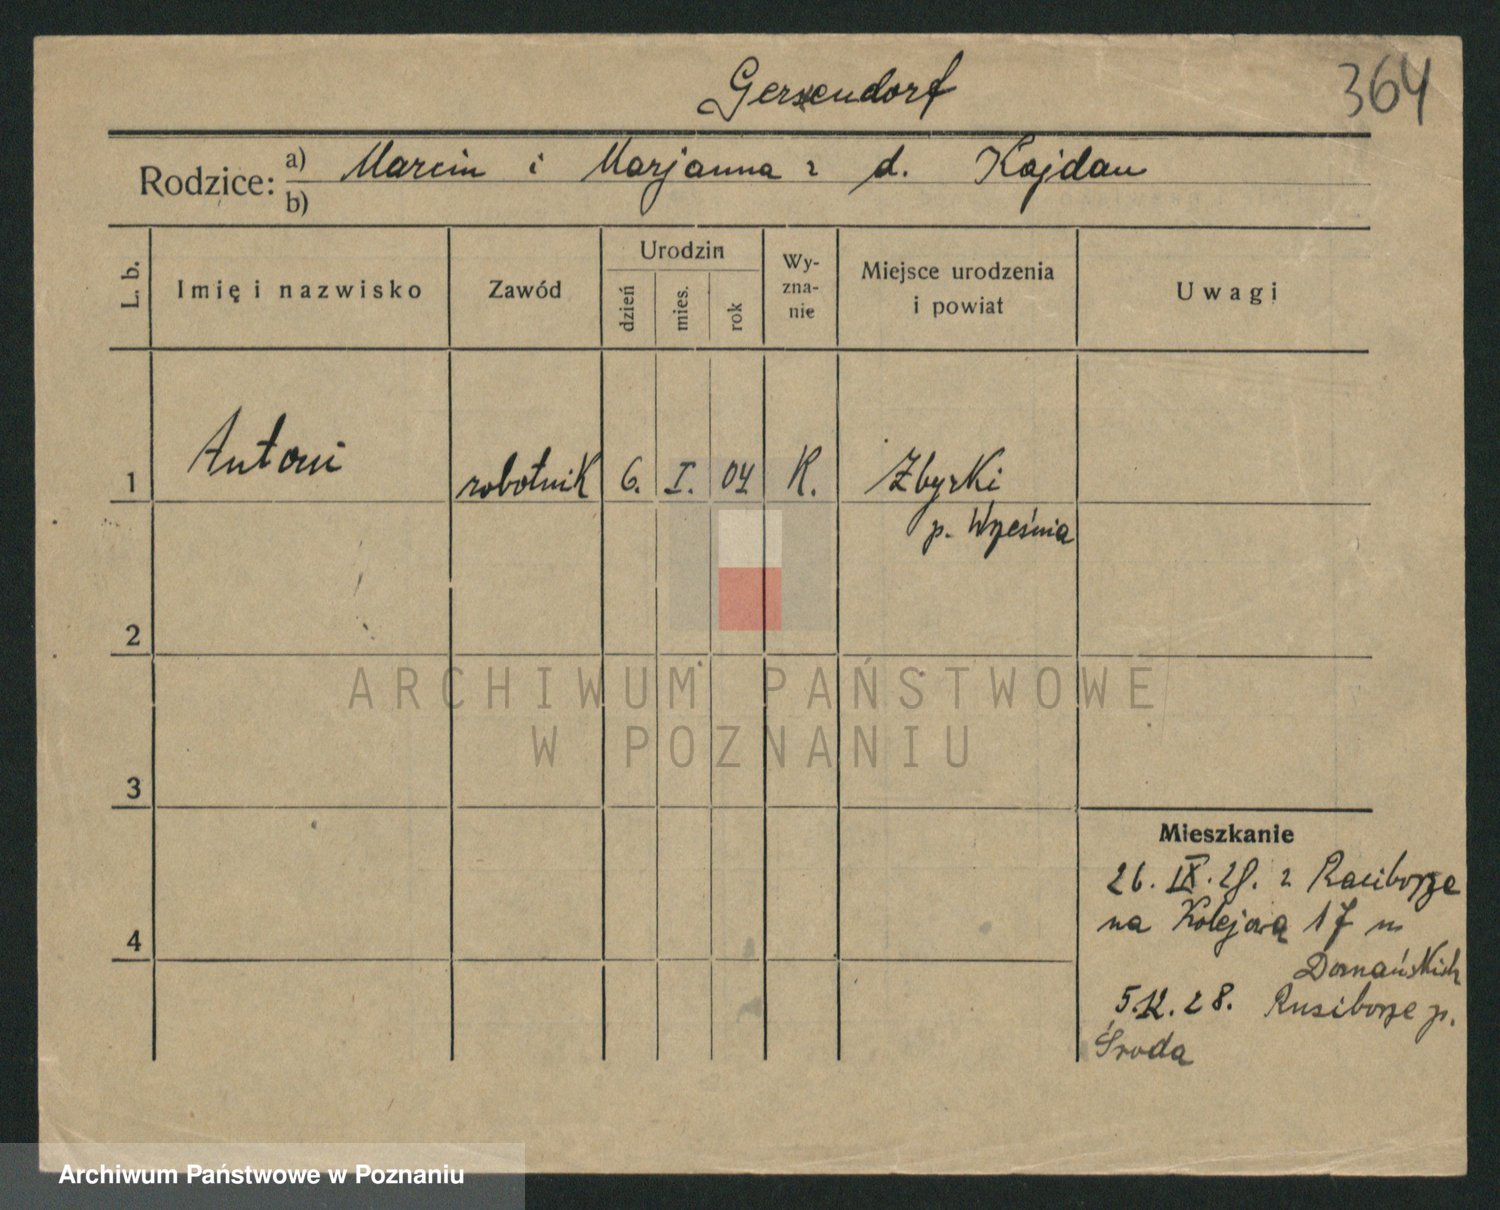 Gerzendorf
364
Rodzice: a) Marcin i Marjanna z d. Kajdan
b)
L. b.
Imię i nazwisko
Zawód
Urodzin
dzień
mies.
rok
Wy-
zna-
nie
Miejsce urodzenia
i powiat
Uwagi
1 Antoni robotnik 6. I. 04 K. Zbyrki
p. Września
2
ARCHIWUM PAŃSTWOWE
W POZNANIU
3
4
Mieszkanie
26. IX. 28. z Raciborze
na Kolejową 17 m
Domańskich
28. Rusiborze p.
Środa
Archiwum Państwowe w Poznaniu